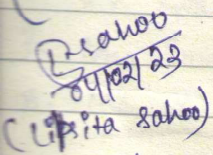 Dsahoo
04/02/23
(Lipsita Sahoo)